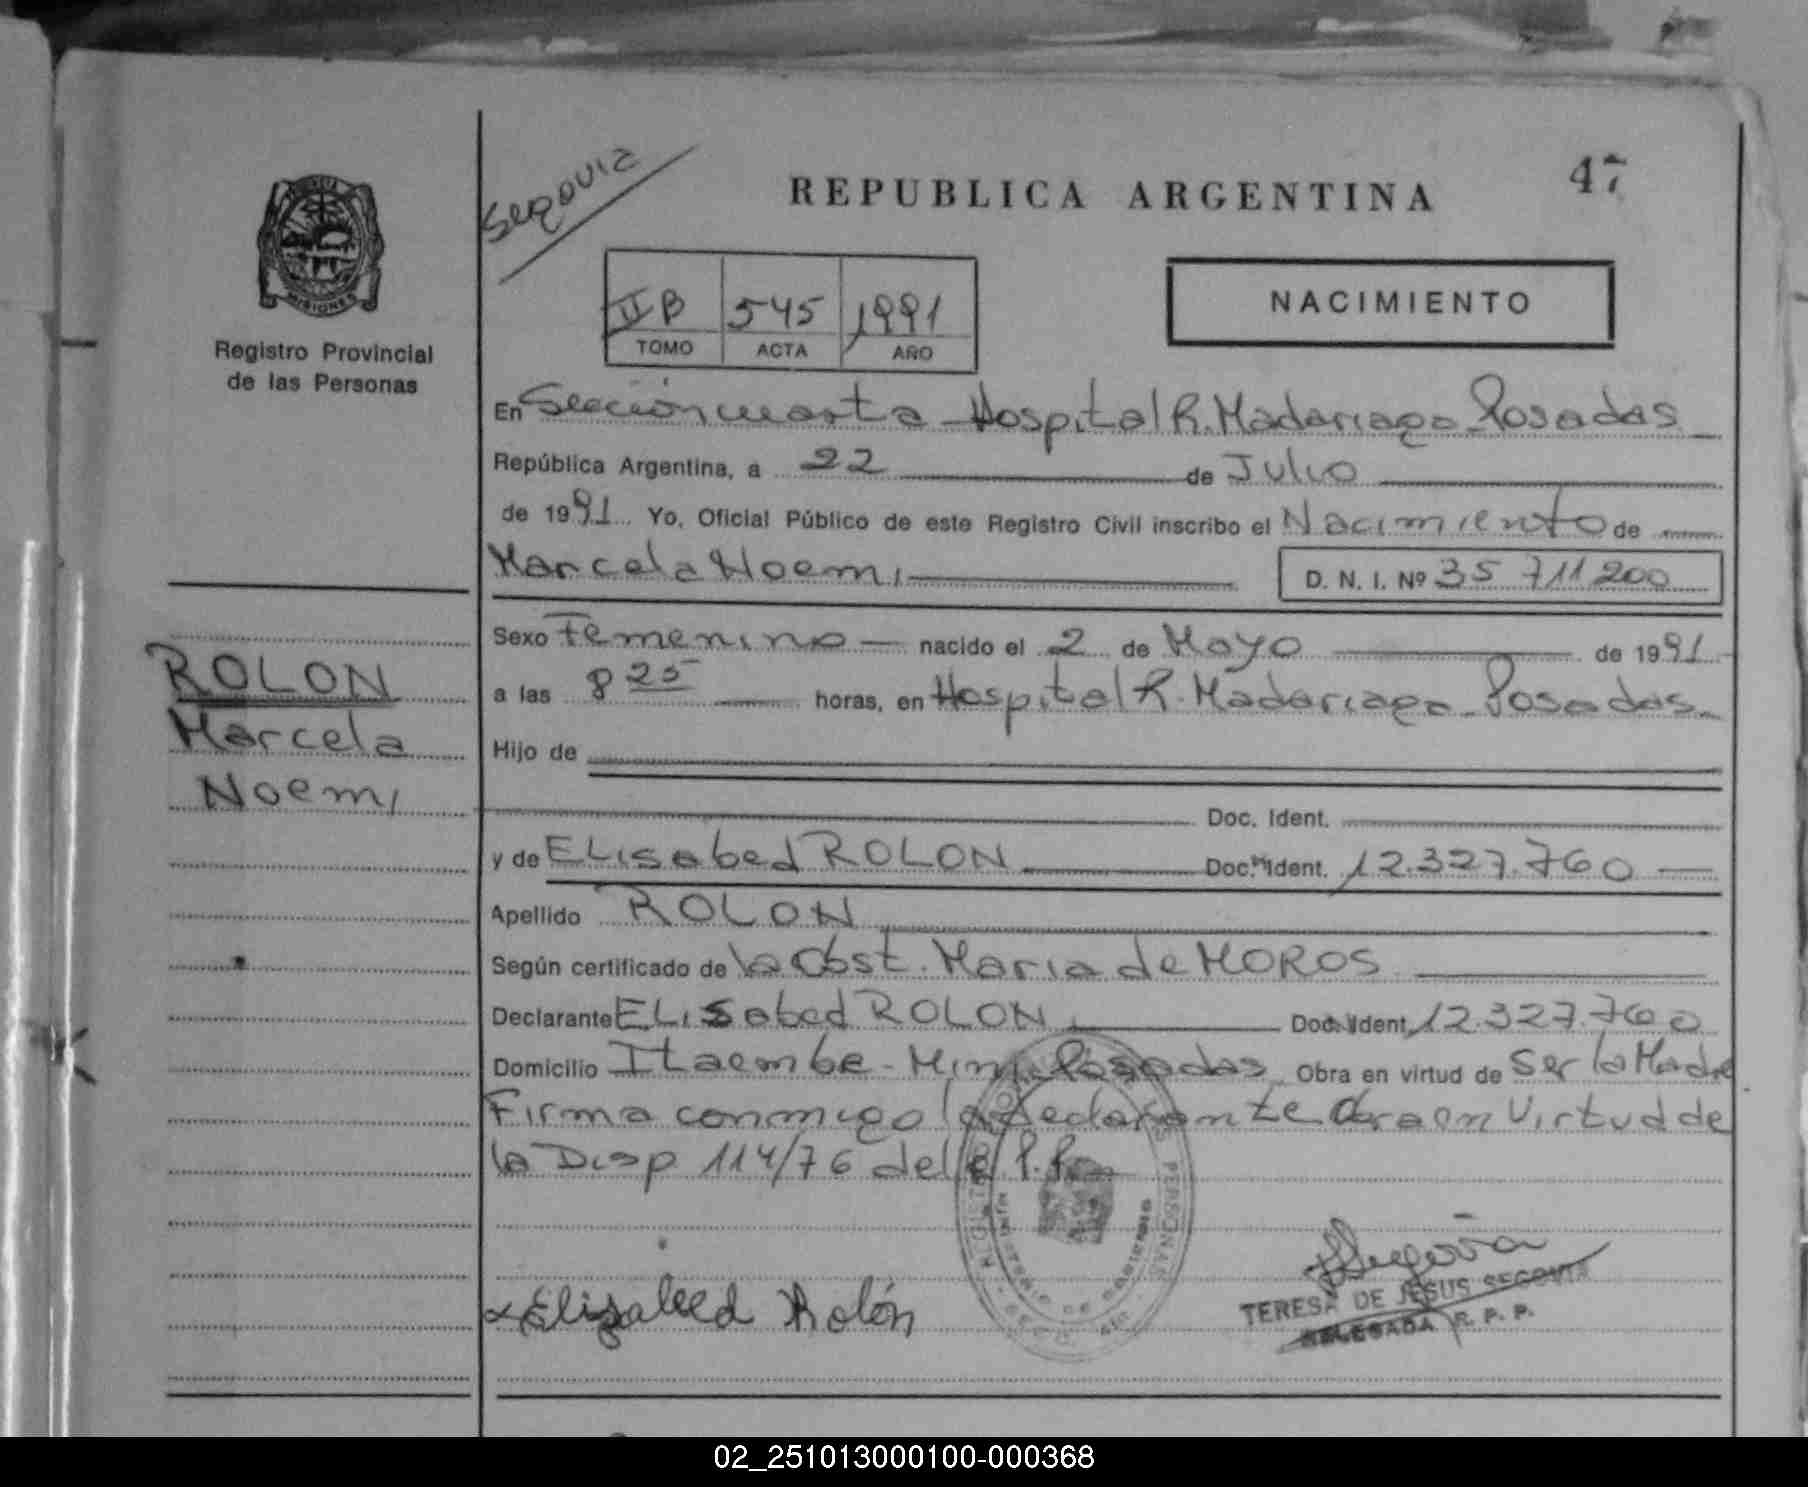 47
Segovia
REPUBLICA ARGENTINA
MISIONES
Registro Provincial
de las Personas
II B 545 1991
TOMO ACTA AÑO
NACIMIENTO
En Sección cuarta Hospital R. Madariaga - Posadas
República Argentina, a 22 de Julio
de 1991 Yo, Oficial Público de este Registro Civil inscribo el Nacimiento de
Marcela Noemi D. N. I. Nº 35 711 200
Sexo Femenino nacido el 2 de Mayo de 1991
a las 8 25 horas, en Hospital R. Madariaga - Posadas
Hijo de
Doc. Ident.
y de ELisabed ROLON Doc. Ident. 12.327.760
Apellido ROLON
Según certificado de la Obst. Maria de MOROS
Declarante ELisabed ROLON Doc. Ident. 12.327.760
Domicilio Itaembe - Mini - Posadas Obra en virtud de Ser la Madre
Firma conmigo la declarante Obra en Virtud de
la Disp 114/76 del R. P. P.
ROLON
Marcela
Noemi
Elizabed Rolón
Segovia
TERESA DE JESUS SEGOVIA
DELEGADA R. P. P.
02_251013000100-000368